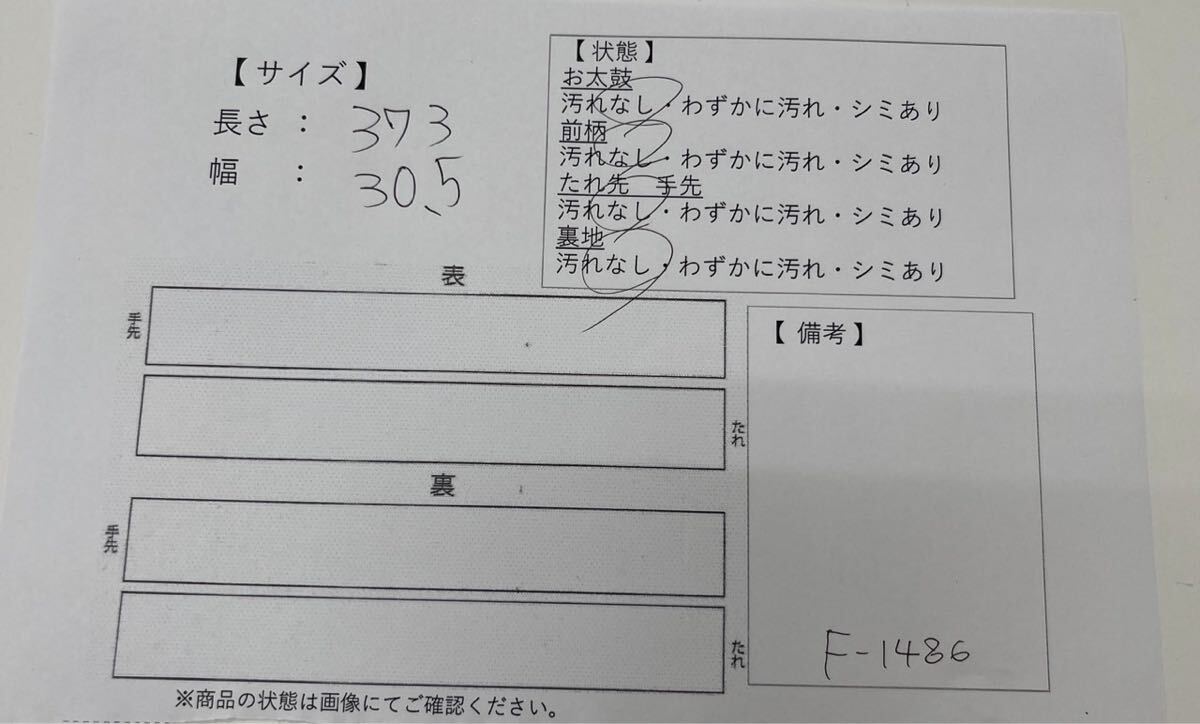 【サイズ】
長さ : 373
幅 : 30.5
【状態】
お太鼓
汚れなし・わずかに汚れ・シミあり
前柄
汚れなし・わずかに汚れ・シミあり
たれ先 手先
汚れなし・わずかに汚れ・シミあり
裏地
汚れなし・わずかに汚れ・シミあり
表
手先
たれ
裏
手先
たれ
※商品の状態は画像にてご確認ください。
【備考】
F-1486